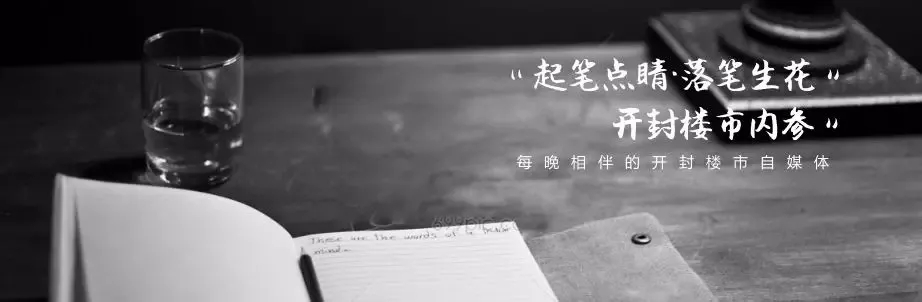 “起笔点睛·落笔生花”
开封楼市内参”
每晚相伴的开封楼市自媒体
These are the words of a
mind.